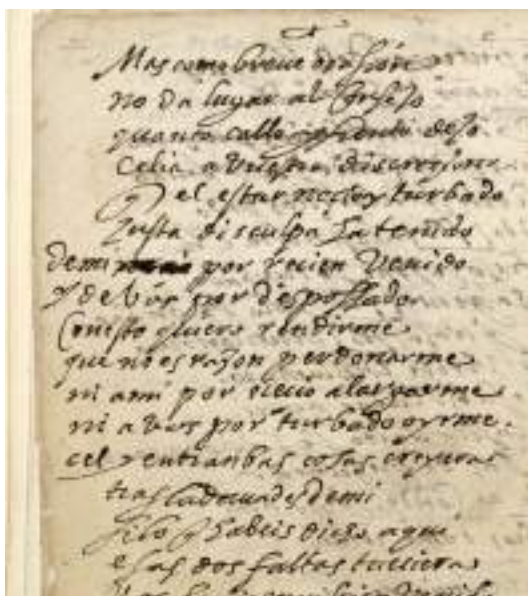 Mas como breue ocasion
no da lugar al Consejo
quanto callo dejo
Celia a vuestra discrecion
q el estar necio y turbado
Justa disculpa a tenido
de mi por recien Venido
y de vos por desposado
Con esto quiero rendirme
que no es razon perdonarme
ni a mi por necio alargarme
ni a vos por turbado oyrme.
cel entranbas cosas creyera
de mi
si lo q habeis dicho aqui
esas dos faltas tuuiera